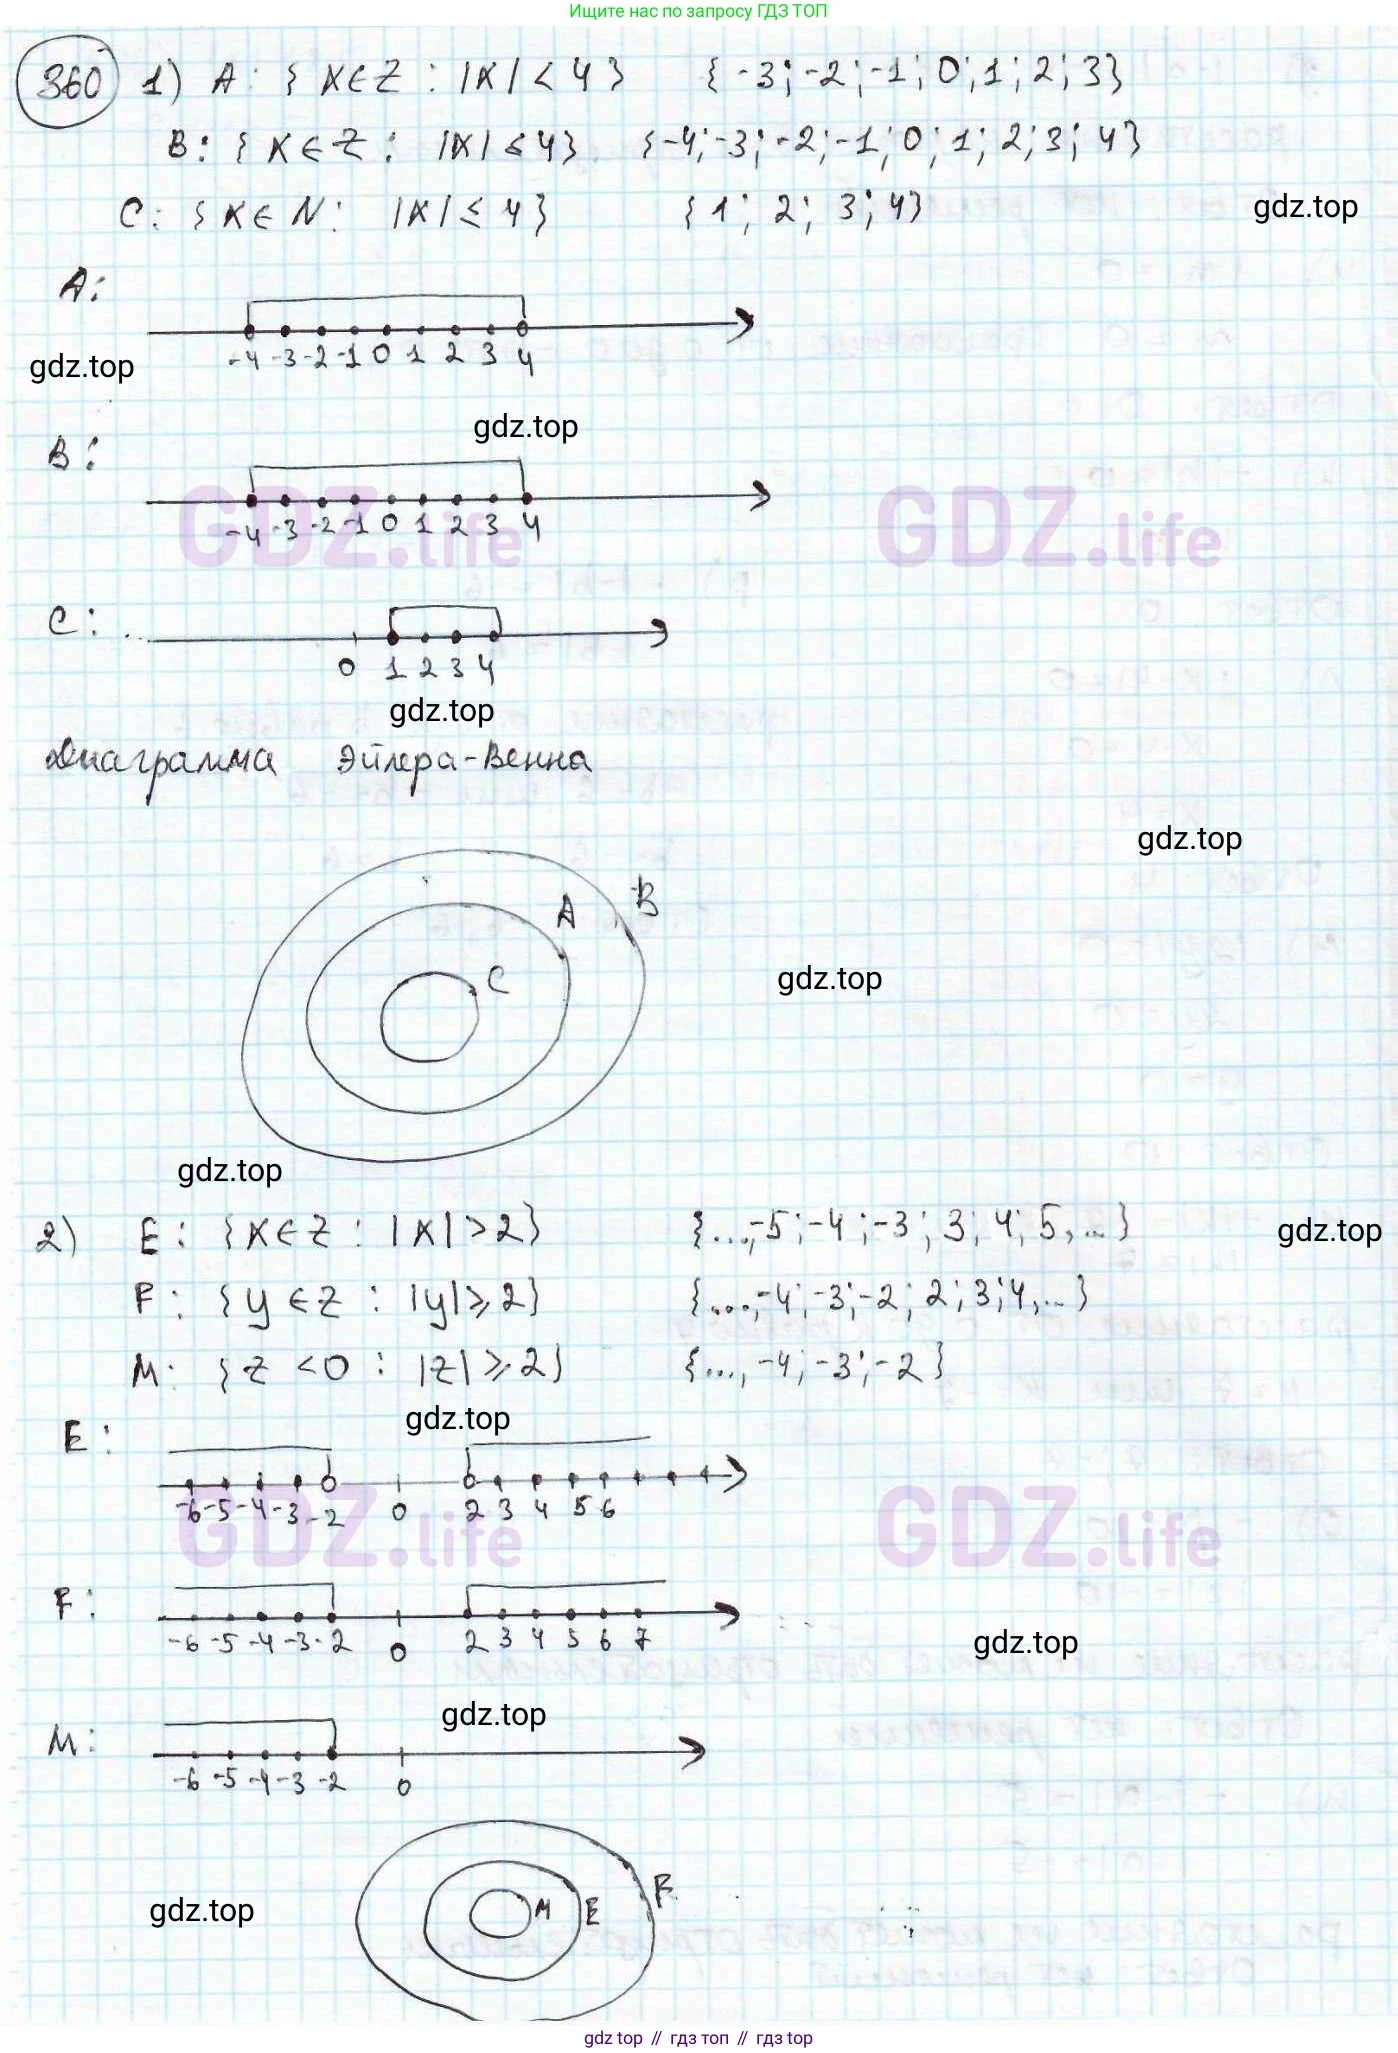 Ищите нас по запросу ГДЗ ТОП
360 1) A: { x ∈ Z : |x| < 4 } { -3; -2; -1; 0; 1; 2; 3}
B: { x ∈ Z : |x| ≤ 4} {-4; -3; -2; -1; 0; 1; 2; 3; 4}
C: { x ∈ N : |x| ≤ 4 } { 1; 2; 3; 4}
gdz.top
A:
-4 -3 -2 -1 0 1 2 3 4
gdz.top
gdz.top
B:
-4 -3 -2 -1 0 1 2 3 4
GDZ.life GDZ.life
C:
0 1 2 3 4
gdz.top
Диаграмма Эйлера-Венна
gdz.top
A B
C
gdz.top
gdz.top
2) E: {x ∈ Z : |x| > 2} {...,-5; -4; -3; 3; 4; 5,...}
gdz.top
F: {y ∈ Z : |y| ≥ 2} {...,-4; -3; -2; 2; 3; 4,...}
M: {z < 0 : |z| ≥ 2} {..., -4; -3; -2}
gdz.top
E:
-6 -5 -4 -3 -2 0 2 3 4 5 6
GDZ.life GDZ.life
F:
-6 -5 -4 -3 -2 0 2 3 4 5 6 7
gdz.top
gdz.top
M:
-6 -5 -4 -3 -2 0
M E F
gdz.top
gdz top // гдз топ // гдз top